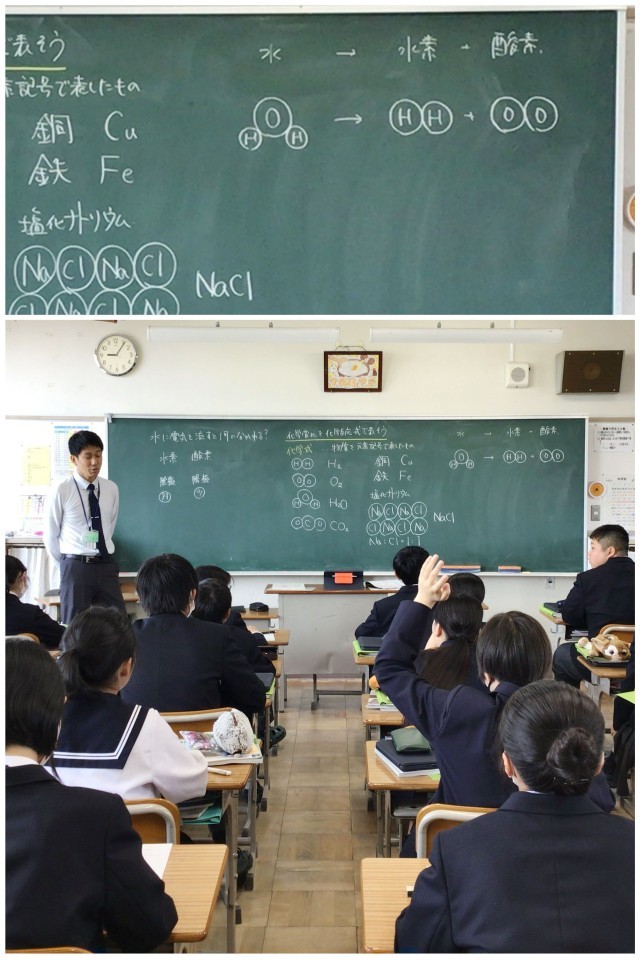 で表そう
記号で表したもの
銅 Cu
鉄 Fe
塩化ナトリウム
Na Cl Na Cl
Cl Na Cl Na
NaCl
水 → 水素 + 酸素
H O H → H H + O O
水に電気を流すと何に
水素 酸素
陰極 陽極
化学式で表そう
化学式 物質を元素記号で表したもの
H H H₂
O O O₂
H O H H₂O
O C O CO₂
銅 Cu
鉄 Fe
塩化ナトリウム
Na Cl Na Cl
Cl Na Cl Na
NaCl
Na:Cl=1:1
水 → 水素 + 酸素
H O H → H H + O O